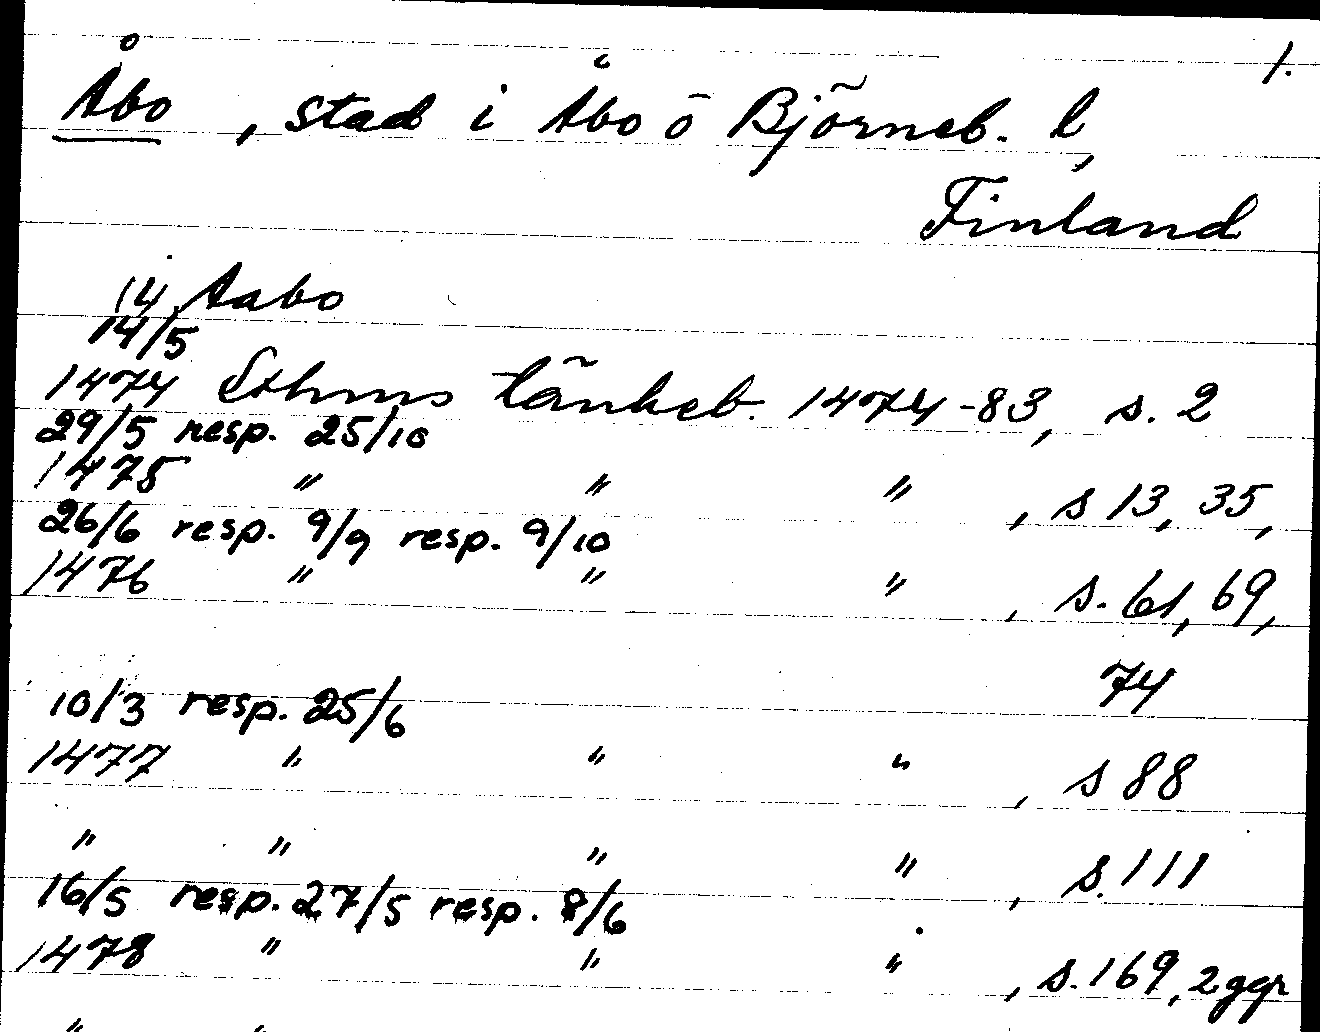 1.
Åbo, stad i Åbo o Björneb. l,
Finland
14 Aabo
14/5
1474 Sthms tänkeb. 1474-83, s. 2
29/5 resp. 25/10
1475 " " " , s 13, 35,
26/6 resp. 9/9 resp. 9/10
1476 " " " , s. 61, 69,
74
10/3 resp. 25/6
1477 " " " , s 88
" " " " , s. 111
16/5 resp. 27/5 resp. 8/6
1478 " " " , s. 169, 2 ggr
" "